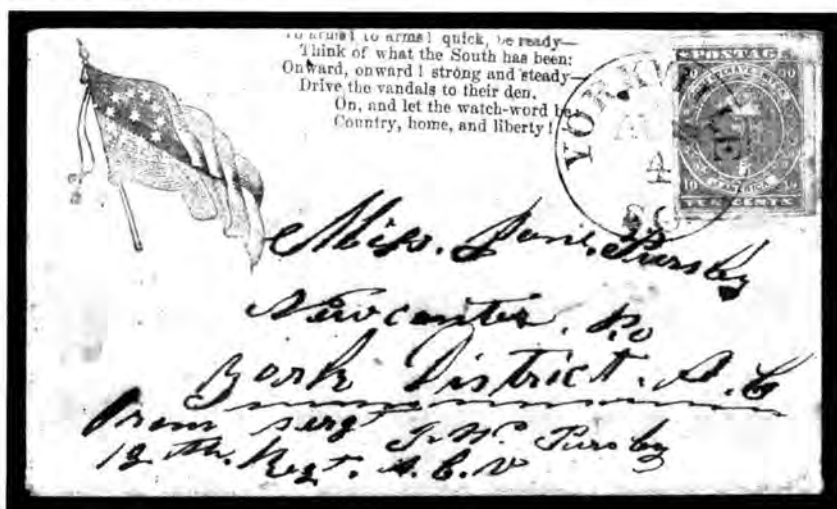 To arms! to arms! quick, be ready—
Think of what the South has been:
Onward, onward! strong and steady—
Drive the vandals to their den.
On, and let the watch-word be
Country, home, and liberty!
YORKVILLE
4
POSTAGE
TEN CENTS
Miss. Jane. Pursby
Newcenter. Po
York District. S. C
From sergt J. W. Pursby
12th. Regt. S. C. V